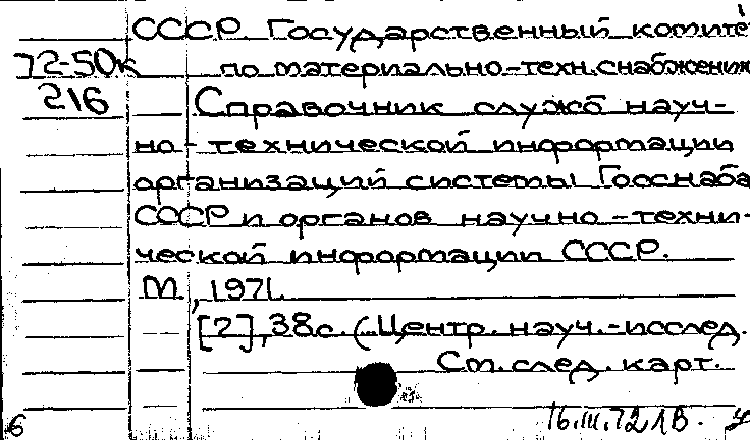 СССР. Государственный комите
72-50к по материально-техн.снабжению
216 Справочник служб науч-
но-технической информации
организаций системы Госснаба
СССР и органов научно-техни-
ческой информации СССР.
М., 1971.
[2], 38с. (Центр. науч.-исслед.
См. след. карт.
6 16.III.72 ЛВ.